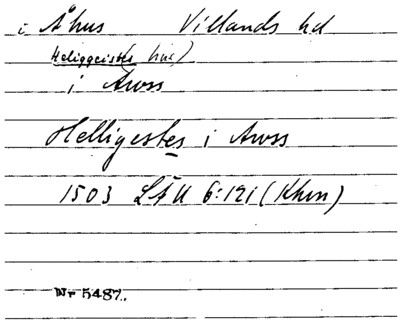 i Åhus Villands hd
Heliggeistes hus)
i Awss
Helligestes i Awss
1503 LÅU 6:121 (Khvn)
Nr 5487.